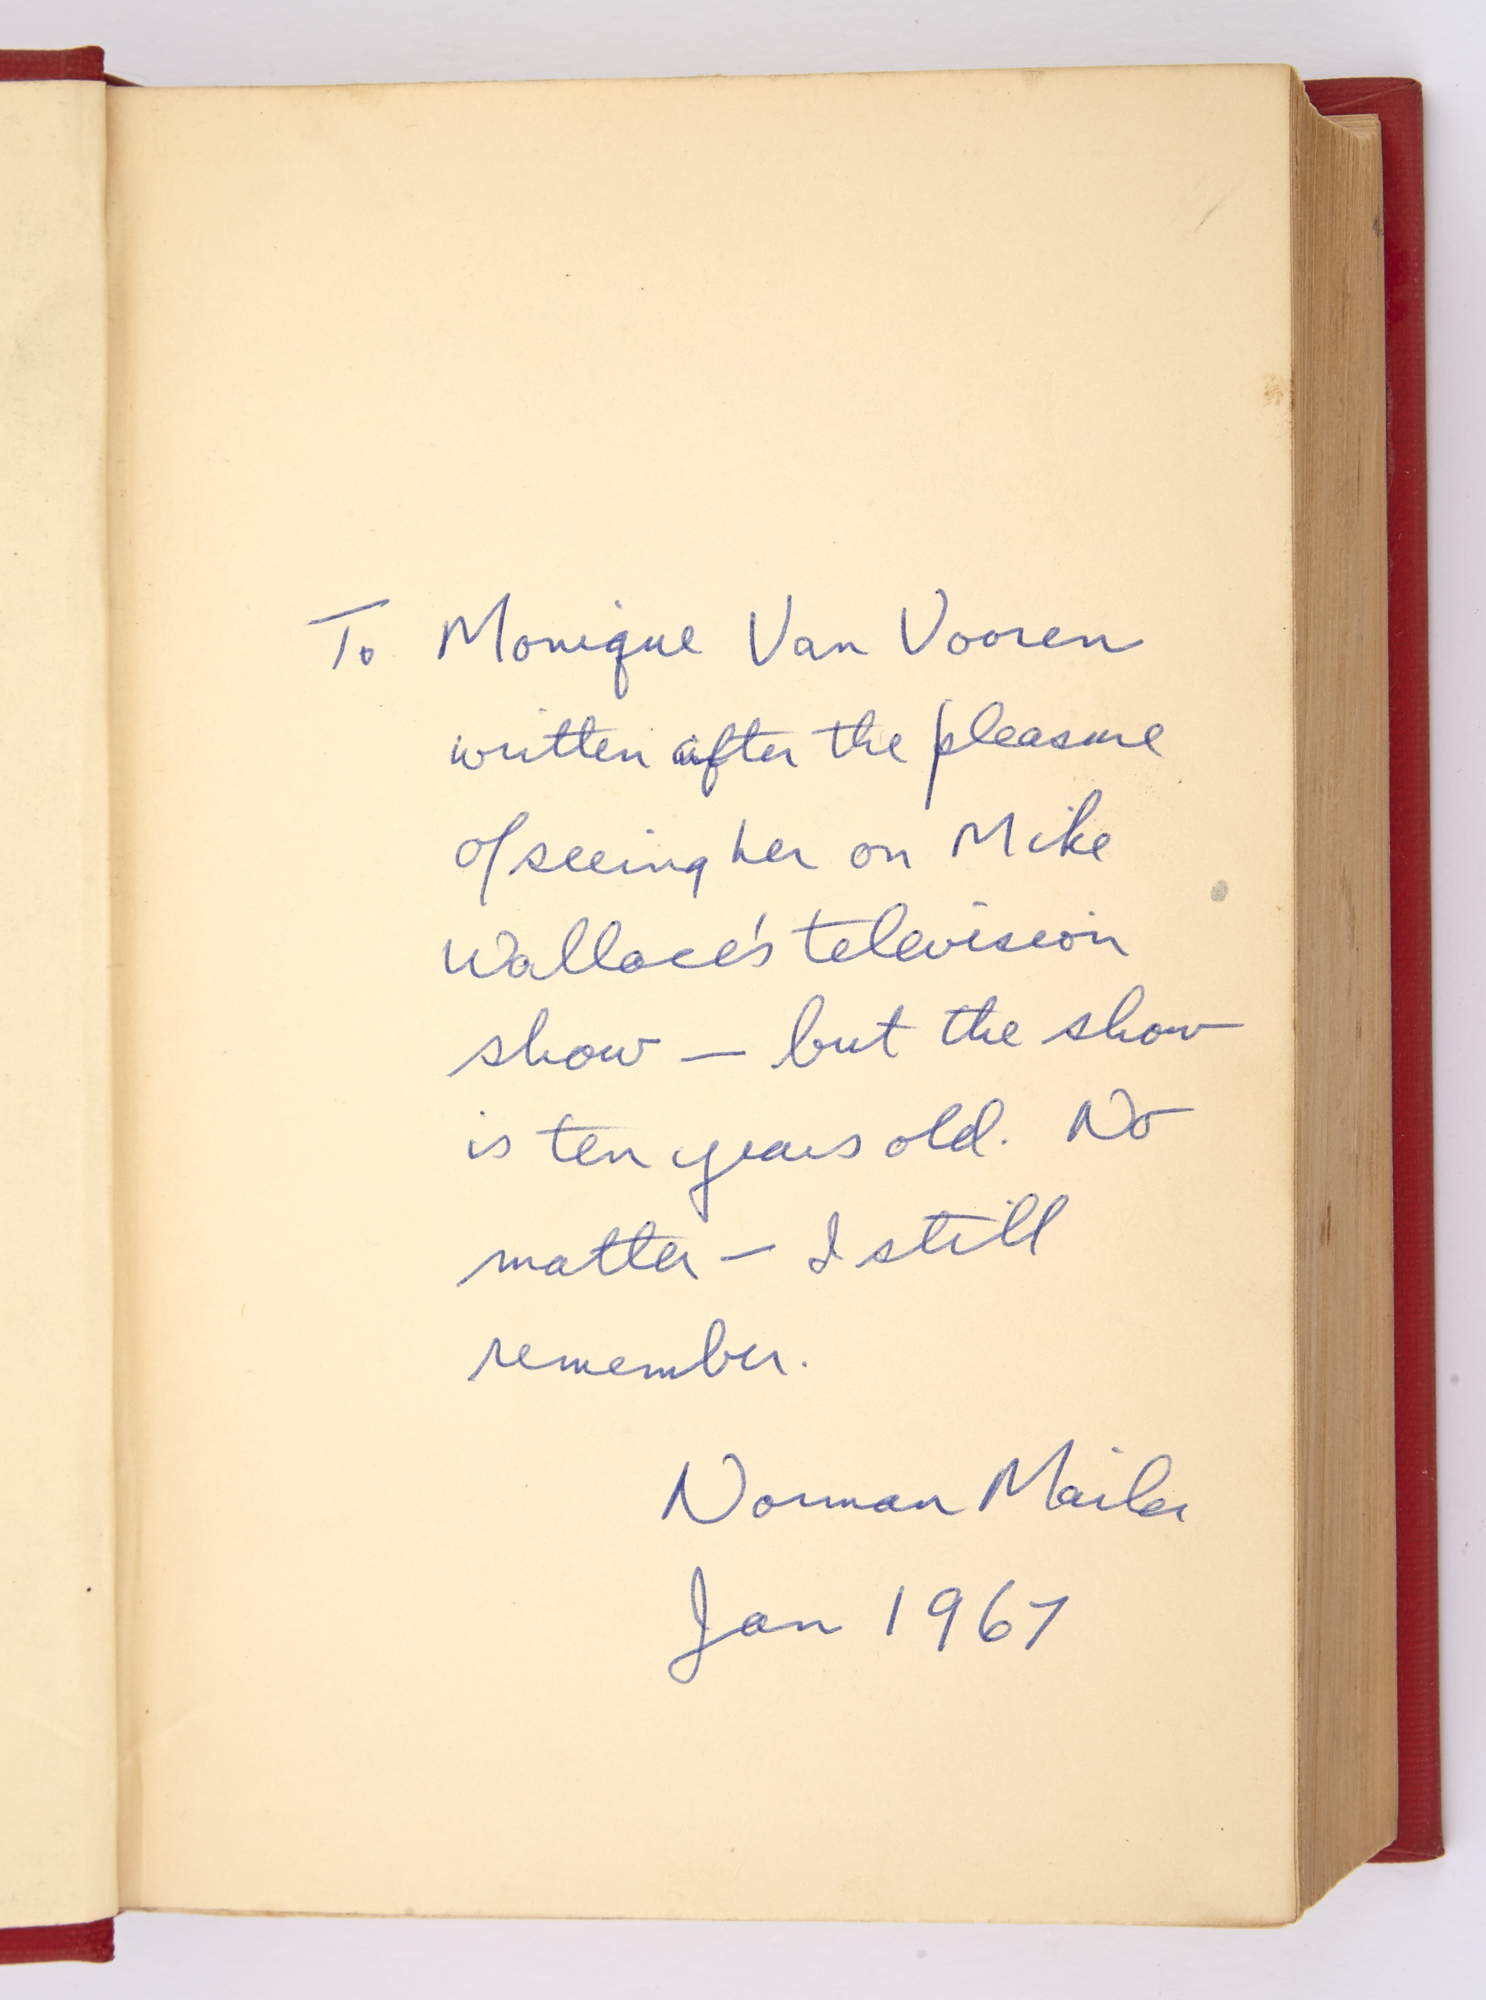 To Monique Van Vooren
written after the pleasure
of seeing her on Mike
Wallace's television
show — but the show
is ten years old. No
matter — I still
remember.
Norman Mailer
Jan 1967